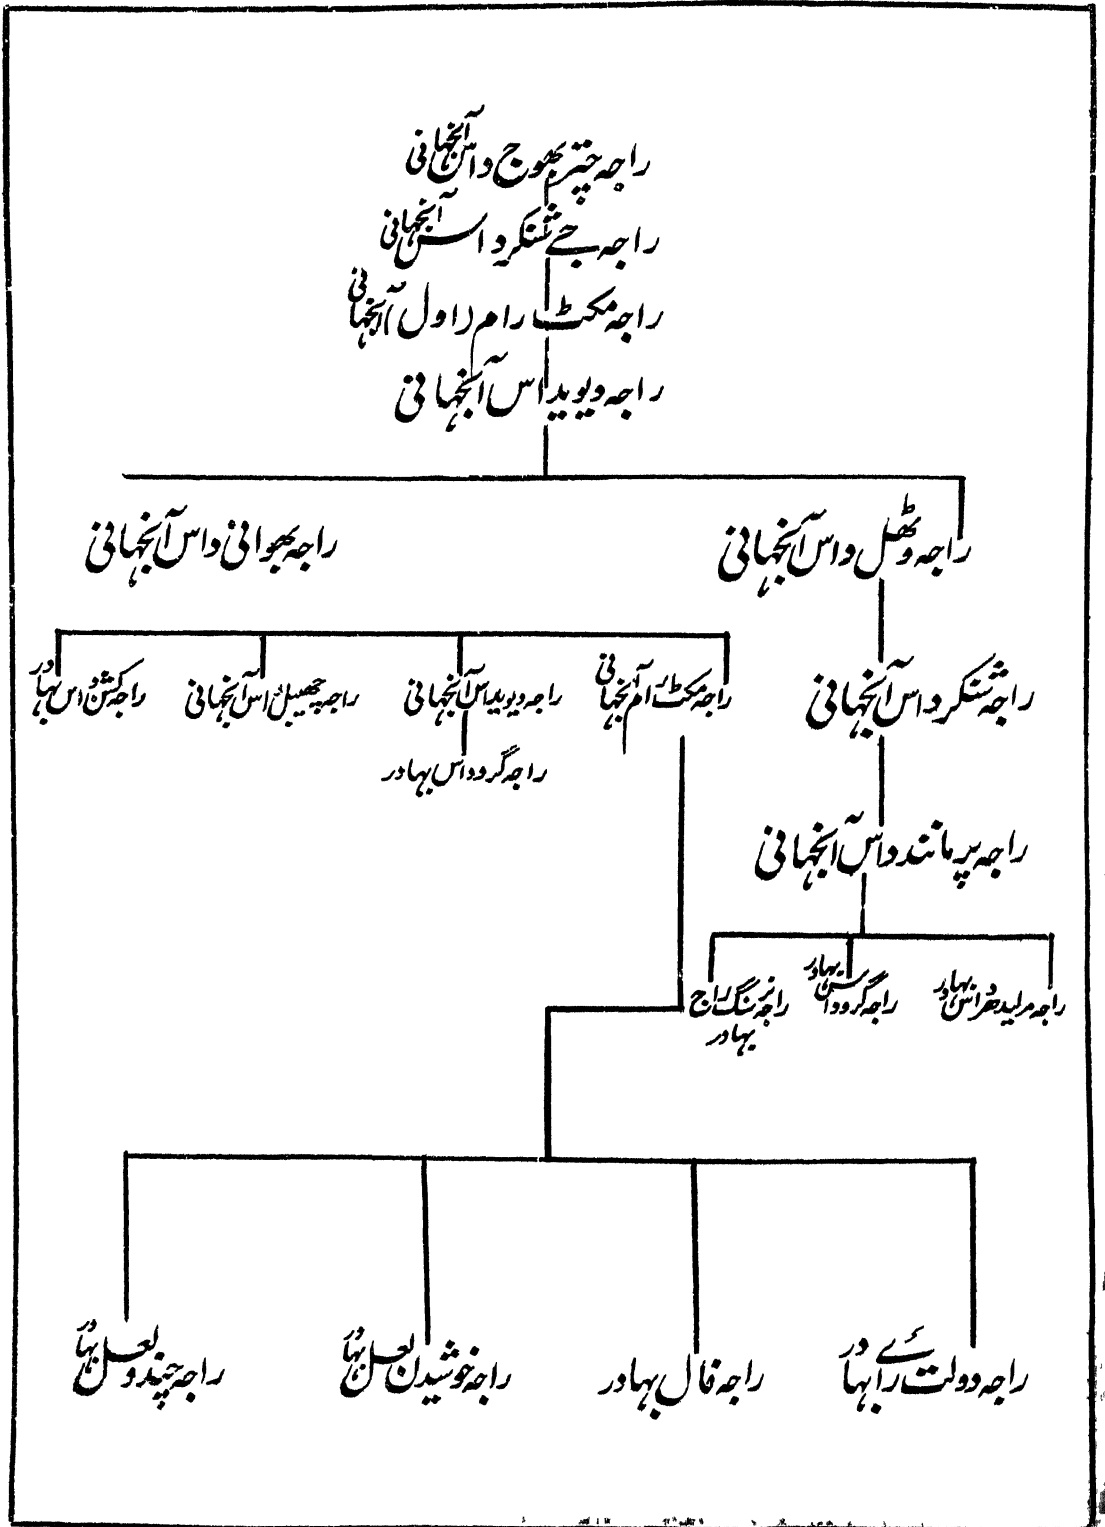 راجہ چتر بھوج داس آنجہانی
راجہ جے شنکر داس آنجہانی
راجہ مکٹ رام (اول) آنجہانی
راجہ دیوید اس آنجہانی
راجہ وٹھل داس آنجہانی
راجہ بھوانی داس آنجہانی
راجہ شنکر داس آنجہانی
راجہ مکٹ رام آنجہانی
راجہ دیوید اس آنجہانی
راجہ چھبیل داس آنجہانی
راجہ کشن داس بہادر
راجہ گرود اس بہادر
راجہ پرمانند داس آنجہانی
راجہ مرلیدھر داس بہادر
راجہ گرود اس بہادر
راجہ نرسنگ راج
بہادر
راجہ دولت رائے بہادر
راجہ فال بہادر
راجہ خوشیدن لعل بہادر
راجہ چندو لعل بہادر